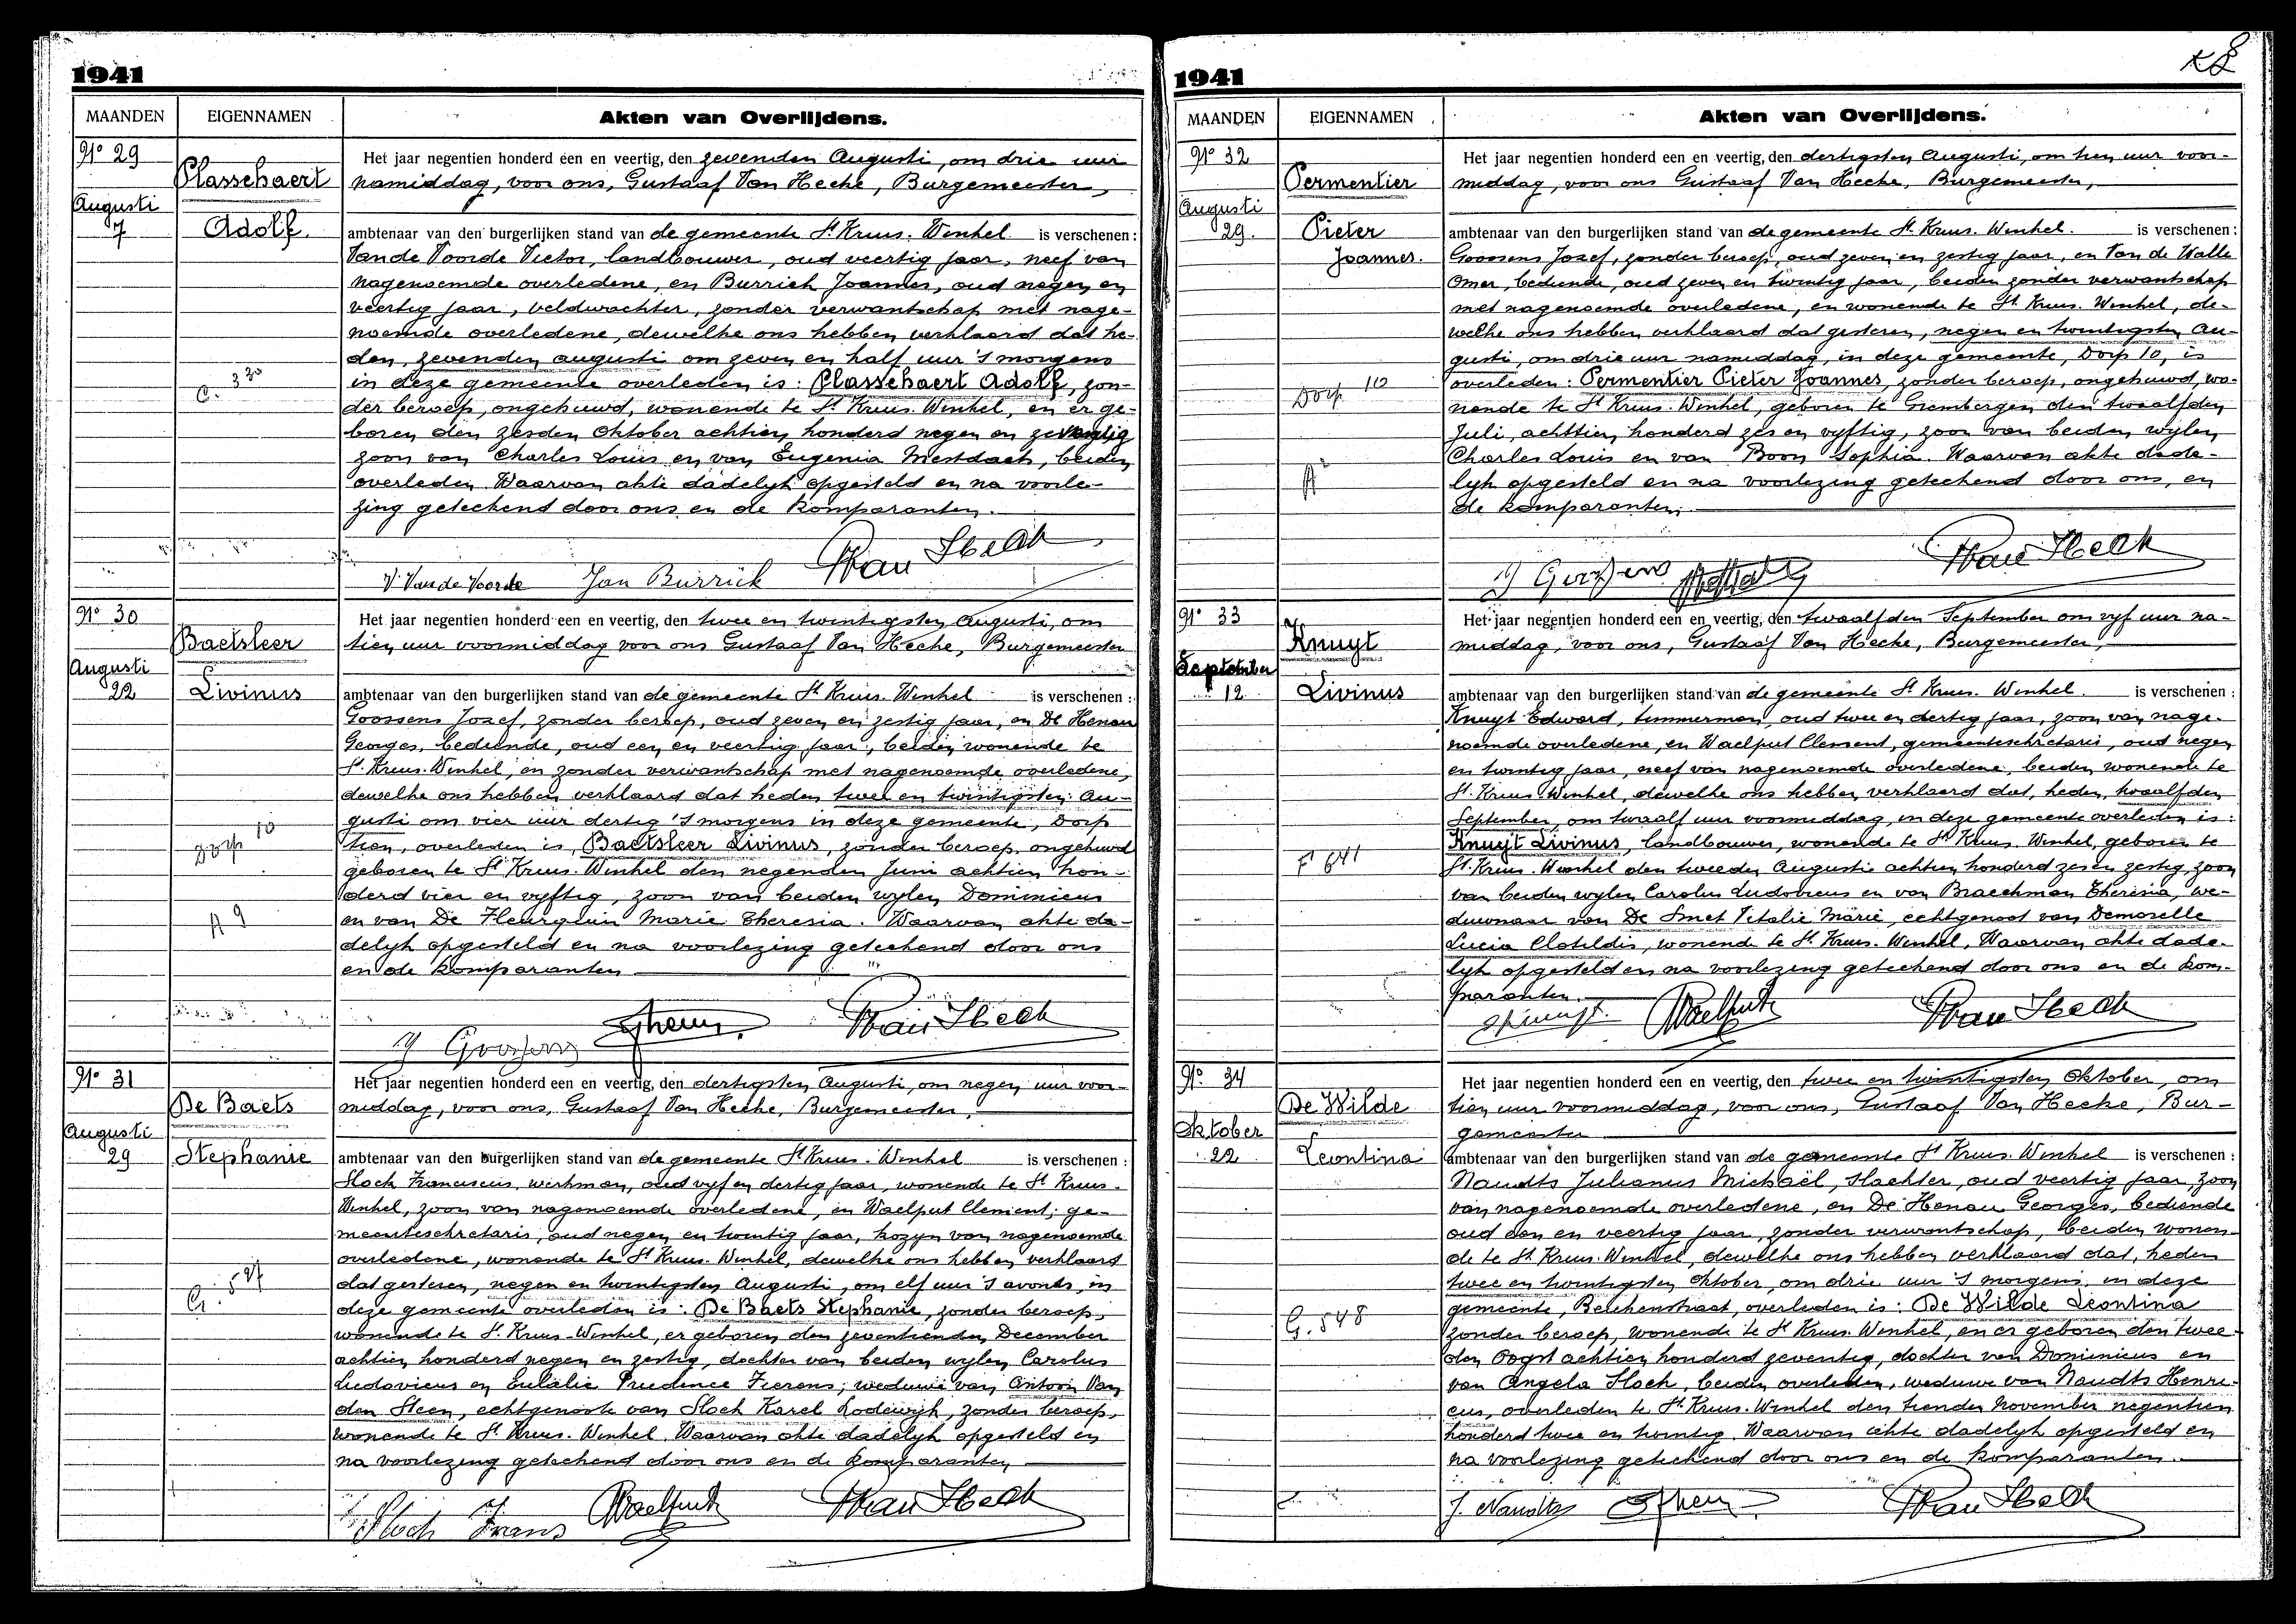 1941
MAANDEN EIGENNAMEN Akten van Overlijdens.
N° 29
Plasschaert
Augusti
7
Adolf.
C. 330
Het jaar negentien honderd een en veertig, den zevenden Augusti, om drie uur
namiddag, voor ons, Gustaaf Van Hecke, Burgemeester,
ambtenaar van den burgerlijken stand van de gemeente St Kruis-Winkel is verschenen:
Van de Voorde Victor, landbouwer, oud veertig jaar, neef van
nagenoemde overledene, en Burrick Joannes, oud negen en
veertig jaar, veldwachter, zonder verwantschap met nage-
noemde overledene, dewelke ons hebben verklaard dat he-
den, zevenden augusti om zeven en half uur 's morgens
in deze gemeente overleden is: Plasschaert Adolf, zon-
der beroep, ongehuwd, wonende te St Kruis-Winkel, en er ge-
boren den zesden Oktober achttien honderd negen en zeventig
zoon van Charles Louis en van Eugenia Mestdach, beiden
overleden. Waarvan akte dadelyk opgesteld en na voorle-
zing geteekend door ons en de komparanten.
V. Van de Voorde Jan Burrick GVan Hecke
N° 30
Baetsleer
Augusti
22
Livinus
Dorp 10
A 9
Het jaar negentien honderd een en veertig, den twee en twintigsten Augusti, om
tien uur voormiddag voor ons Gustaaf Van Hecke, Burgemeester
ambtenaar van den burgerlijken stand van de gemeente St Kruis-Winkel is verschenen:
Goossens Jozef, zonder beroep, oud zeven en zestig jaar, en De Henau
Georges, bediende, oud een en veertig jaar, beiden wonende te
St. Kruis-Winkel, en zonder verwantschap met nagenoemde overledene,
dewelke ons hebben verklaard dat heden twee en twintigsten Au-
gusti om vier uur dertig 's morgens in deze gemeente, Dorp
tien, overleden is, Baetsleer Livinus, zonder beroep, ongehuwd
geboren te St Kruis-Winkel den negenden Juni achtien hon-
derd vier en vyftig, zoon van beiden wylen Dominicus
en van De Fleurquin Marie Theresia. Waarvan akte da-
delyk opgesteld en na voorlezing geteekend door ons
en de komparanten
J Goossens GVan Hecke
N° 31
De Baets
Augusti
29
Stephanie
G. 527
Het jaar negentien honderd een en veertig, den dertigsten Augusti, om negen uur voor-
middag, voor ons, Gustaaf Van Hecke, Burgemeester,
ambtenaar van den burgerlijken stand van de gemeente St Kruis-Winkel is verschenen:
Slock Franciscus, werkman, oud vyf en dertig jaar, wonende te St Kruis-
Winkel, zoon van nagenoemde overledene, en Waelput Clement, ge-
meentesekretaris, oud negen en twintig jaar, kozyn van nagenoemde
overledene, wonende te St Kruis-Winkel, dewelke ons hebben verklaard
dat gisteren, negen en twintigsten Augusti, om elf uur 's avonds, in
deze gemeente overleden is: De Baets Stephanie, zonder beroep,
wonende te St. Kruis-Winkel, er geboren den zeventienden December
achtien honderd negen en zestig, dochter van beiden wylen Carolus
Ludovicus en Eulalie Prudence Fierens; weduwe van Antoon Van
den Steen, echtgenoote van Slock Karel Lodewijk, zonder beroep,
wonende te St. Kruis-Winkel. Waarvan akte dadelyk opgesteld en
na voorlezing geteekend door ons en de komparanten
Slock Frans Waelput GVan Hecke
1941
8
MAANDEN EIGENNAMEN Akten van Overlijdens.
N° 32
Permentier
Augusti
29.
Pieter
Joannes.
Dorp 10
A
Het jaar negentien honderd een en veertig, den dertigsten Augusti, om tien uur voor-
middag, voor ons Gustaaf Van Hecke, Burgemeester,
ambtenaar van den burgerlijken stand van de gemeente St. Kruis-Winkel. is verschenen:
Goossens Jozef, zonder beroep, oud zeven en zestig jaar, en Van de Walle
Omer, bediende, oud zeven en twintig jaar, beiden zonder verwantschap
met nagenoemde overledene, en wonende te St Kruis-Winkel, de-
welke ons hebben verklaard dat gisteren, negen en twintigsten Au-
gusti, om drie uur namiddag, in deze gemeente, Dorp 10, is
overleden: Permentier Pieter Joannes, zonder beroep, ongehuwd, wo-
nende te St Kruis-Winkel, geboren te Grembergen den twaalfden
Juli, achttien honderd zes en vyftig, zoon van beiden wylen
Charles Louis en van Boon Sophia. Waarvan akte dade-
lyk opgesteld en na voorlezing geteekend door ons, en
de komparanten.
J Goossens GVan Hecke
N° 33
Knuyt
September
12
Livinus
F 641
Het jaar negentien honderd een en veertig, den twaalfden September om vyf uur na-
middag, voor ons, Gustaaf Van Hecke, Burgemeester,
ambtenaar van den burgerlijken stand van de gemeente St Kruis-Winkel. is verschenen:
Knuyt Edward, timmerman, oud twee en dertig jaar, zoon van nage-
noemde overledene, en Waelput Clement, gemeentesekretaris, oud negen
en twintig jaar, neef van nagenoemde overledene, beiden wonende te
St. Kruis-Winkel, dewelke ons hebben verklaard dat, heden, twaalfden
September, om twaalf uur voormiddag, in deze gemeente overleden is:
Knuyt Livinus, landbouwer, wonende te St Kruis-Winkel, geboren te
St. Kruis-Winkel den tweeden Augusti achtien honderd zes en zestig, zoon
van beiden wylen Carolus Ludovicus en van Braeckman Theresia, we-
duwnaar van De Smet Vitalie Marie, echtgenoot van Demoselle
Lucia Clotildis, wonende te St. Kruis-Winkel. Waarvan akte dade-
lyk opgesteld en na voorlezing geteekend door ons en de kom-
paranten.
E Knuyt. Waelput GVan Hecke
N° 34
De Wilde
Oktober
22
Leontina
G. 548
Het jaar negentien honderd een en veertig, den twee en twintigsten Oktober, om
tien uur voormiddag, voor ons, Gustaaf Van Hecke, Bur-
gemeester
ambtenaar van den burgerlijken stand van de gemeente St Kruis-Winkel is verschenen:
Naudts Julianus Michaël, slachter, oud veertig jaar, zoon
van nagenoemde overledene, en De Henau Georges, bediende
oud een en veertig jaar, zonder verwantschap, beiden wonen-
de te St. Kruis-Winkel, dewelke ons hebben verklaard dat, heden
twee en twintigsten Oktober, om drie uur 's morgens, in deze
gemeente, Belchenstraat, overleden is: De Wilde Leontina
zonder beroep, wonende te St Kruis-Winkel, en er geboren den twee-
den Oogst achtien honderd zeventig, dochter van Dominicus en
van Angela Slock, beiden overleden, weduwe van Naudts Henri-
cus, overleden te St. Kruis-Winkel den tienden November negentien
honderd twee en twintig. Waarvan akte dadelyk opgesteld en
na voorlezing geteekend door ons en de komparanten.
J. Naudts GVan Hecke